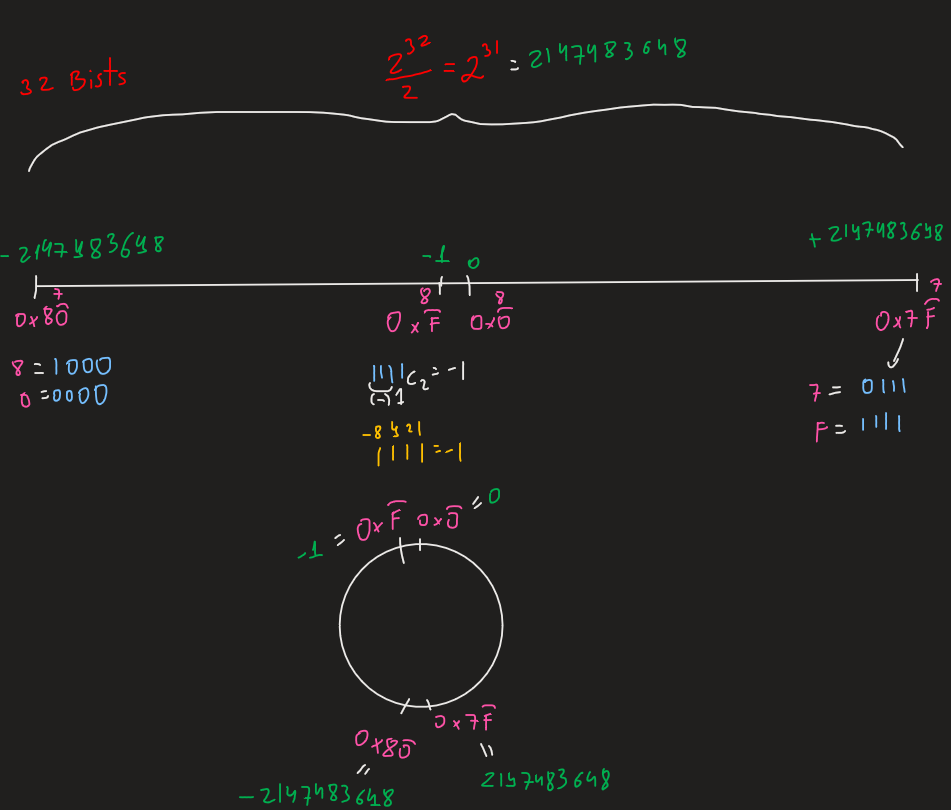 32 Bists
2^32/2 = 2^31 = 2147483648
-2147483648 -1 0 +2147483648
7 8 8 7
0x80̅ 0xF̅ 0x0̅ 0x7F̅
8 = 1000
0 = 0000
1111 C₂ = -1
(-) 1
7 = 0111
F = 1111
-8 4 2 1
1 1 1 1 = -1
-1 = 0xF̅ 0x0̅ = 0
0x80̅ 0x7F̅
= =
-2147483648 2147483648